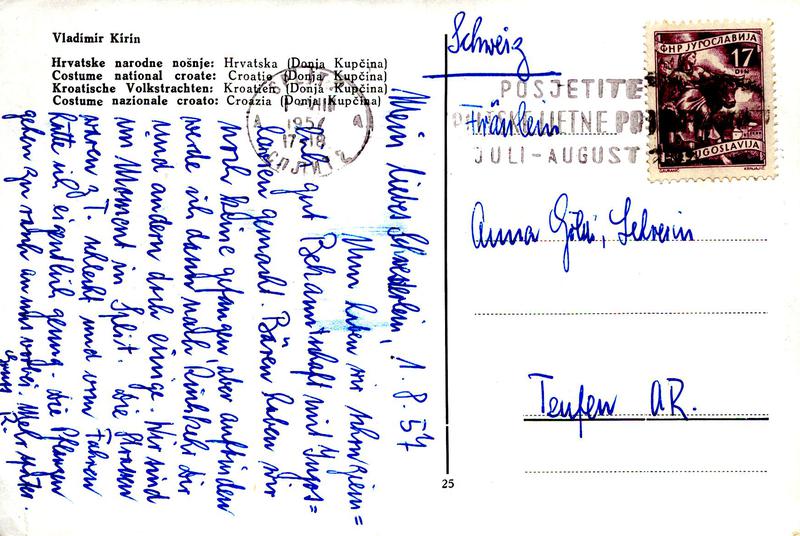 Vladimir Kirin
Hrvatske narodne nošnje: Hrvatska (Donja Kupčina)
Costume national croate: Croatie (Donja Kupčina)
Kroatische Volkstrachten: Kroatien (Donja Kupčina)
Costume nazionale croato: Croazia (Donja Kupčina)
Mein liebes Schwesterlein, 1.8.54
Nun haben wir schon ziem=
lich gut Bekanntschaft mit Jugos=
lawien gemacht. Bären haben wir
noch keine gefangen aber aufbinden
werde ich dann nach Rückkehr Dir
und andern doch einige. Wir sind
im Moment in Split. Die Strassen
waren z.T. schlecht und vom Fahren
hätte ich eigentlich genug. Die Pflanzen
gehen zu rasch an uns vorbei. Mehr später.
Gruss R.
VIII
1954
17-18
СПЛИТ 2
POSJETITE
LJETNE
JULI-AUGUST
ФНР ЈУГОСЛАВИЈА
17
DIN
JUGOSLAVIJA
Schweiz
Fräulein
Anna Göldi, Lehrerin
Teufen AR.
25